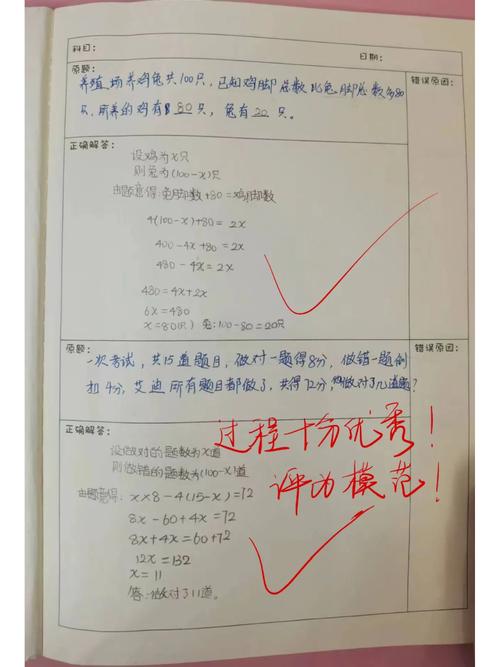 科目：
日期：
原题：
错误原因：
养殖场养鸡兔共100只，已知鸡脚总数比兔脚总数多80
只，所养的鸡有80只，兔有20只。
正确解答：
设鸡为x只
则兔为(100-x)只
由题意得：兔脚数+80=鸡脚数
4(100-x)+80=2x
400-4x+80=2x
480-4x=2x
480=4x+2x
6x=480
x=80(只) 兔:100-80=20只
原题：
错误原因：
一次考试，共15道题目，做对一题得8分，做错一题倒
扣4分，艾迪所有题目都做了，共得72分，他做对了几道题？
正确解答：
过程十分优秀！
评为模范！
设做对的题数为x道
则做错的题数为(100-x)道
由题意得：x×8-4(15-x)=72
8x-60+4x=72
8x+4x=60+72
12x=132
x=11
答：做对了11道。